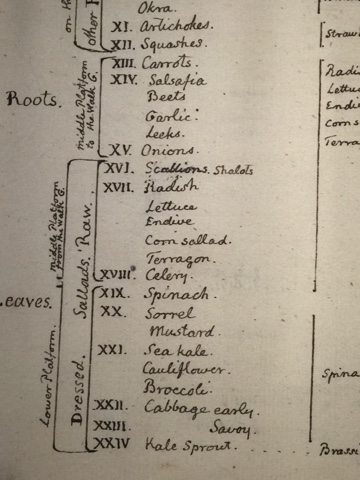 Okra.
XI. Artichokes.
XII. Squashes.
XIII. Carrots.
XIV. Salsafia
Beets
Garlic.
Leeks.
XV. Onions.
XVI. Scallions. Shalots
XVII. Radish
Lettuce
Endive
Corn sallad.
Terragon.
XVIII. Celery.
XIX. Spinach.
XX. Sorrel
Mustard.
XXI. Sea kale.
Cauliflower.
Broccoli.
XXII. Cabbage early.
XXIII. Savoy.
XXIV Kale Sprout.
Roots.
eaves.
on the
other
middle Platform
to the Walk G.
Middle Platform
from the walk G.
Lower Platform.
Sallads. Raw.
Dressed.
Straw
Radi
Lettu
Endi
corn s
Terra
Spina
Brassi